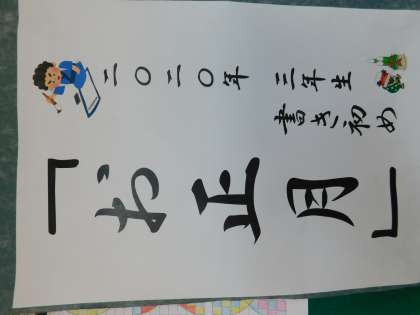 二〇二〇年 三年生
書き初め
「お正月」